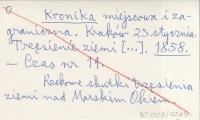 Kronika miejscowa i za-
graniczna. Kraków 23 stycznia.
Trzęsienie ziemi [...]. 1858.
– Czas nr 19.
Rzekome skutki trzęsienia
ziemi nad Morskim Okiem.